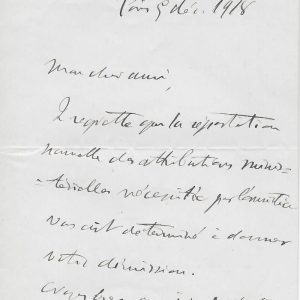 Paris 9 déc. 1918
Mon cher ami,
Je regrette que la répartition
nouvelle des attributions minis-
-térielles nécessitée par l'armistice
vous ait déterminé à donner
votre démission.